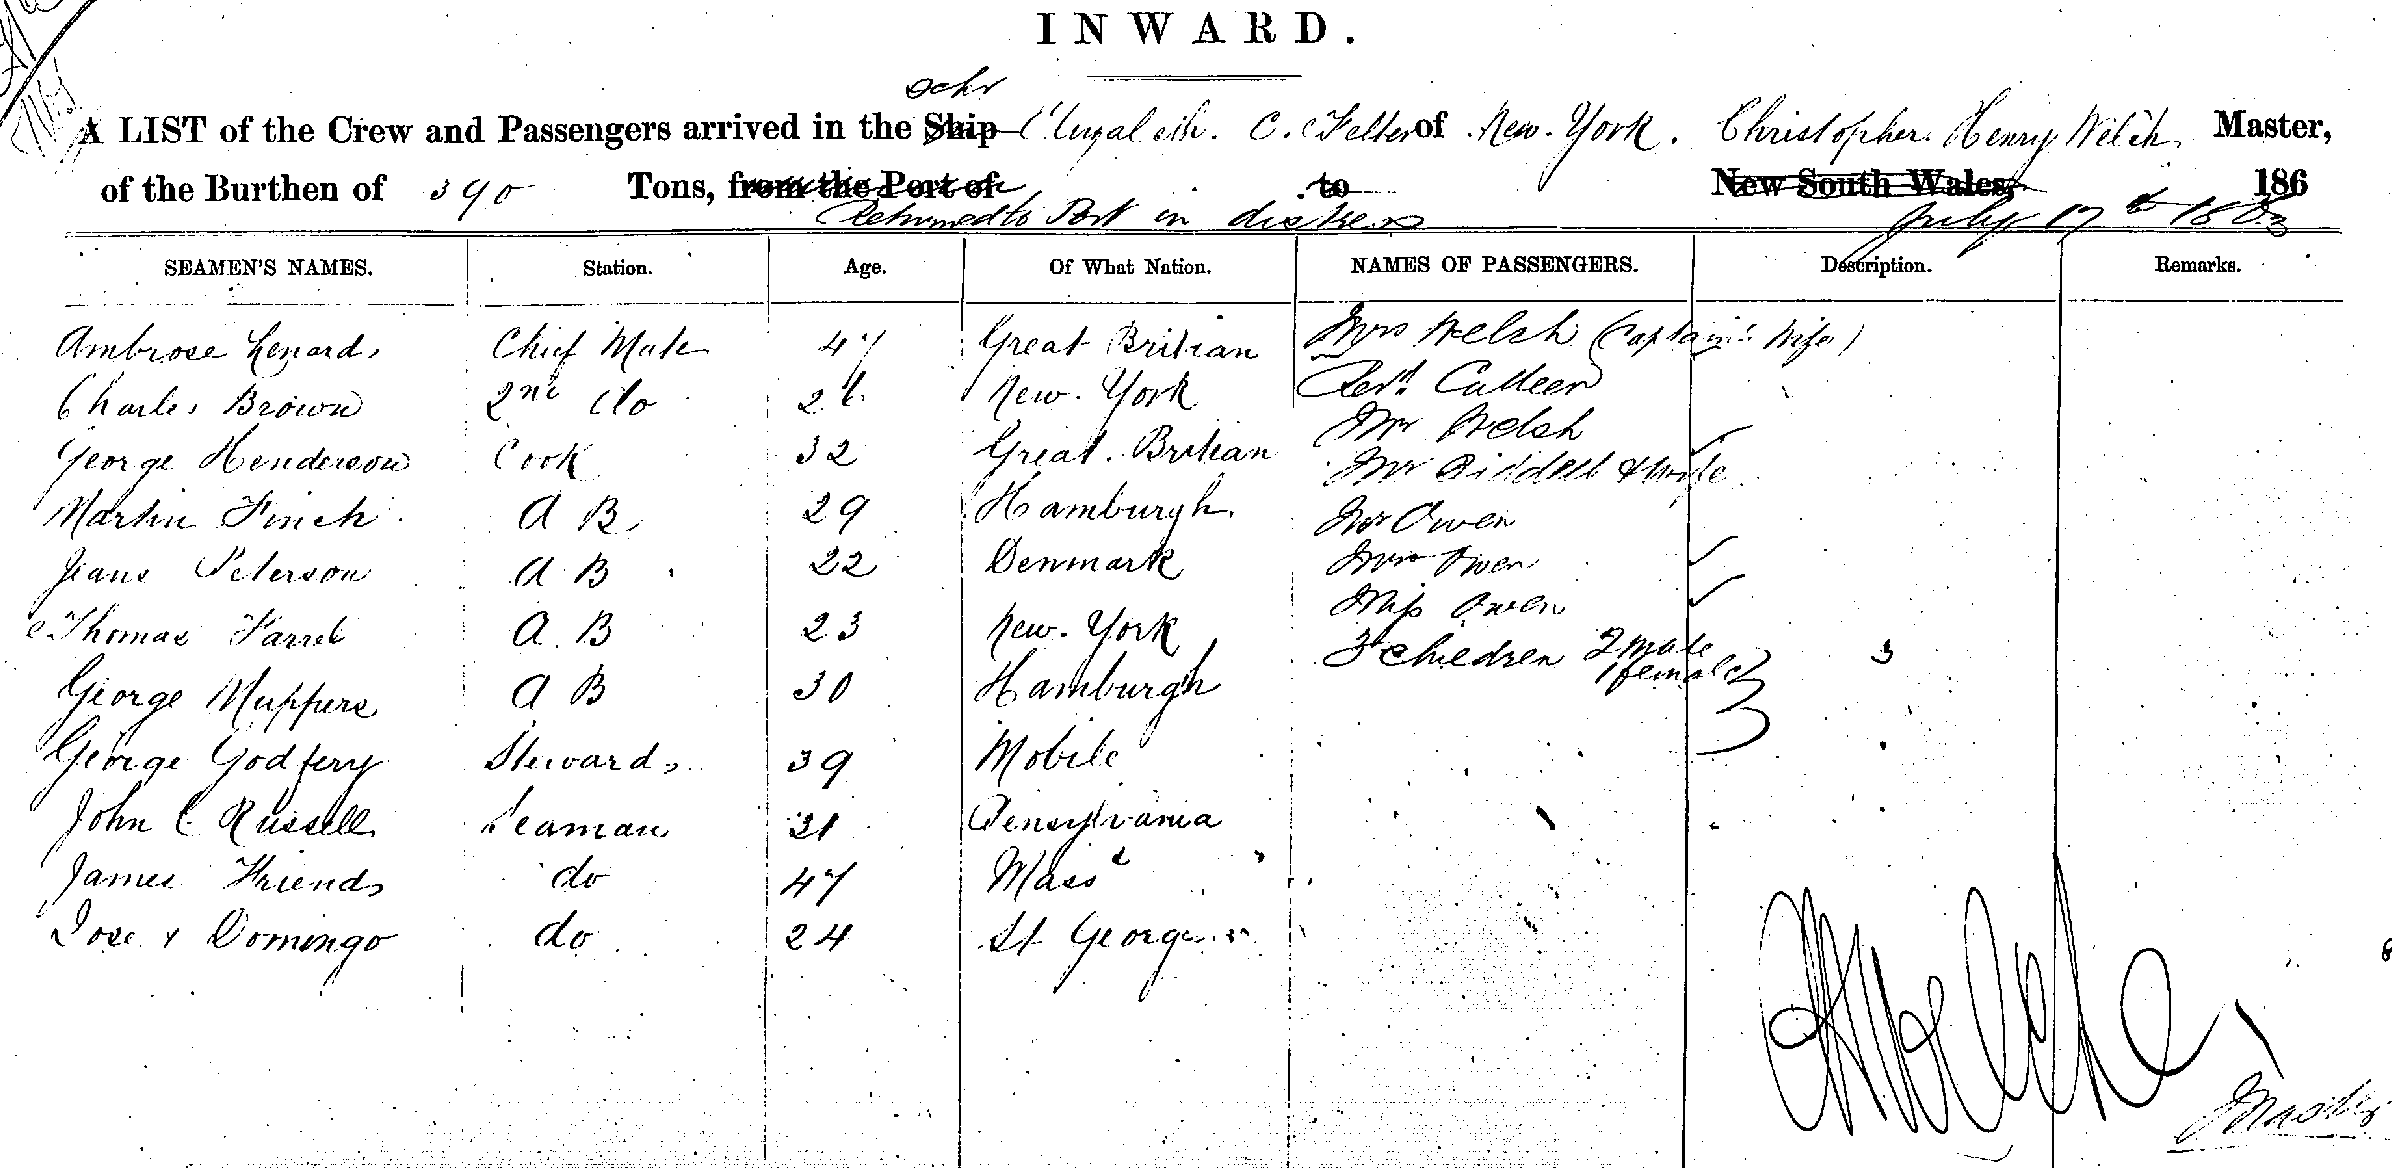 INWARD.
schr
A LIST of the Crew and Passengers arrived in the Ship Elizabeth. C. Felter of New. York. Christopher. Henry Welch. Master,
of the Burthen of 390 Tons, from the Port of to New South Wales, 186
Returned to Port in distress July 17th 1863
SEAMEN'S NAMES. Station. Age. Of What Nation. NAMES OF PASSENGERS. Description. Remarks.
Ambrose Lenard Chief Mate 47 Great Britian Mrs Welch (Captain's Wife)
Charles Brown 2nd do 26 New. York Revd. Culleen
George Henderson Cook 32 Great. Britian Mr Welsh
Mr Riddell & Wife
Martin Finch A B 29 Hamburgh. Mr Owen
Jeans Peterson A B 22 Denmark Mrs Owen
Miss Owen
Thomas Farrel A. B 23 New. York 3 children 2 male
1 female 3
George Muppers A B 30 Hamburgh
George Godfery Steward 39 Mobile
John C Russell Seaman 21 Pensylvania
James Friends do 47 Mass
Jose Domingo do 24 St Georges
Welch
Master